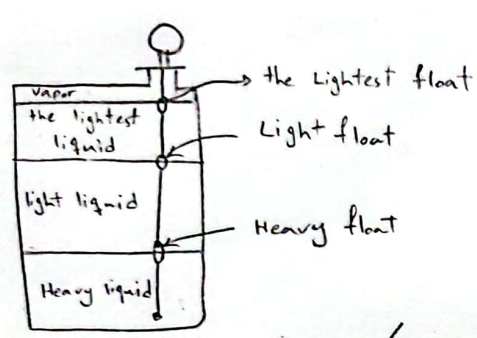 vapor
the lightest
liquid
light liquid
Heavy liquid
the Lightest float
Light float
Heavy float